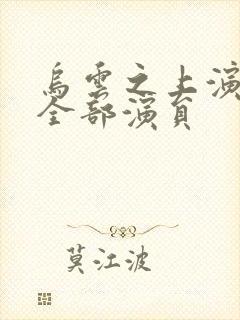 烏雲之上演
全部演員
莫江波